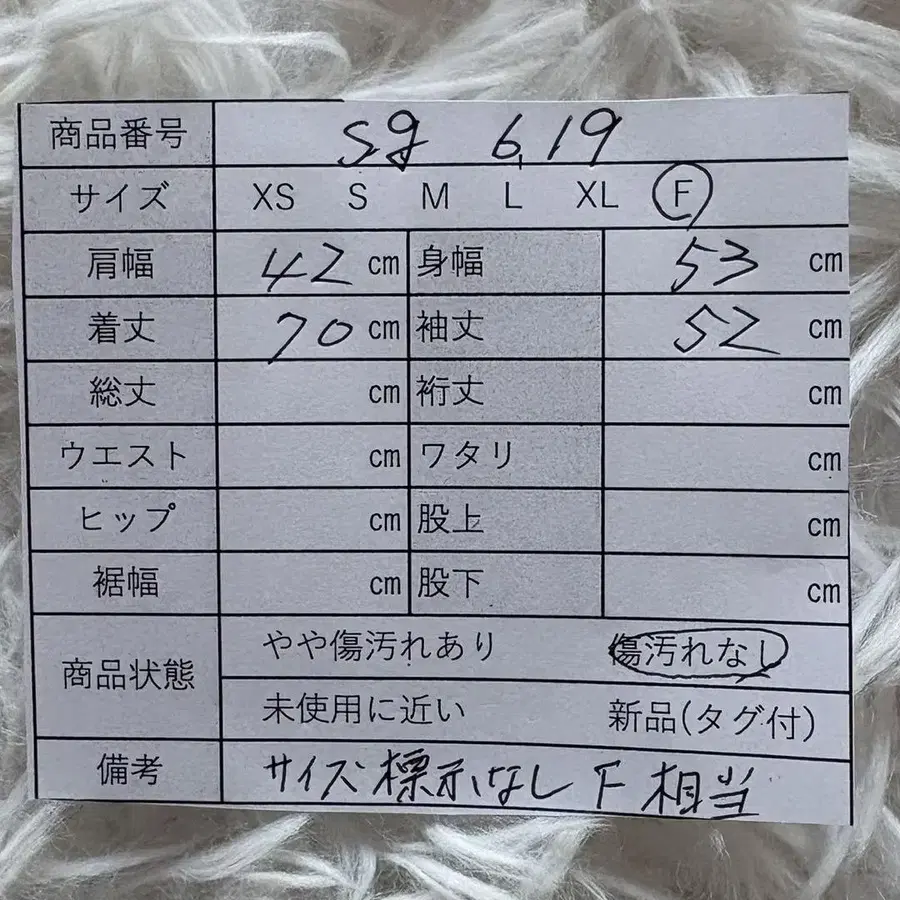 商品番号 sg 6,19
サイズ XS S M L XL F
肩幅 42 cm 身幅 53 cm
着丈 70 cm 袖丈 52 cm
総丈 cm 裄丈 cm
ウエスト cm ワタリ cm
ヒップ cm 股上 cm
裾幅 cm 股下 cm
商品状態 やや傷汚れあり 傷汚れなし
未使用に近い 新品(タグ付)
備考 サイズ標示なし F 相当